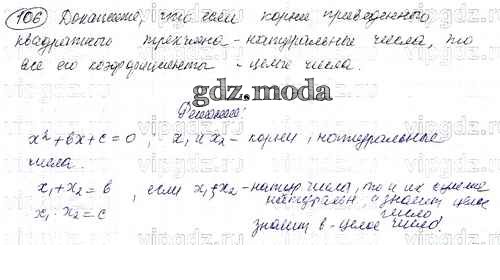 106 Докажите, что если корни приведенного
квадратного трехчлена - натуральные числа, то
все его коэффициенты - целые числа.
gdz.moda
Решение:
x² + bx + c = 0, x₁ и x₂ - корни, натуральные
числа.
x₁ + x₂ = b, если x₁, x₂ - натур числа, то и их
x₁ · x₂ = c натуральн, значит целое
число
значит b - целое число.